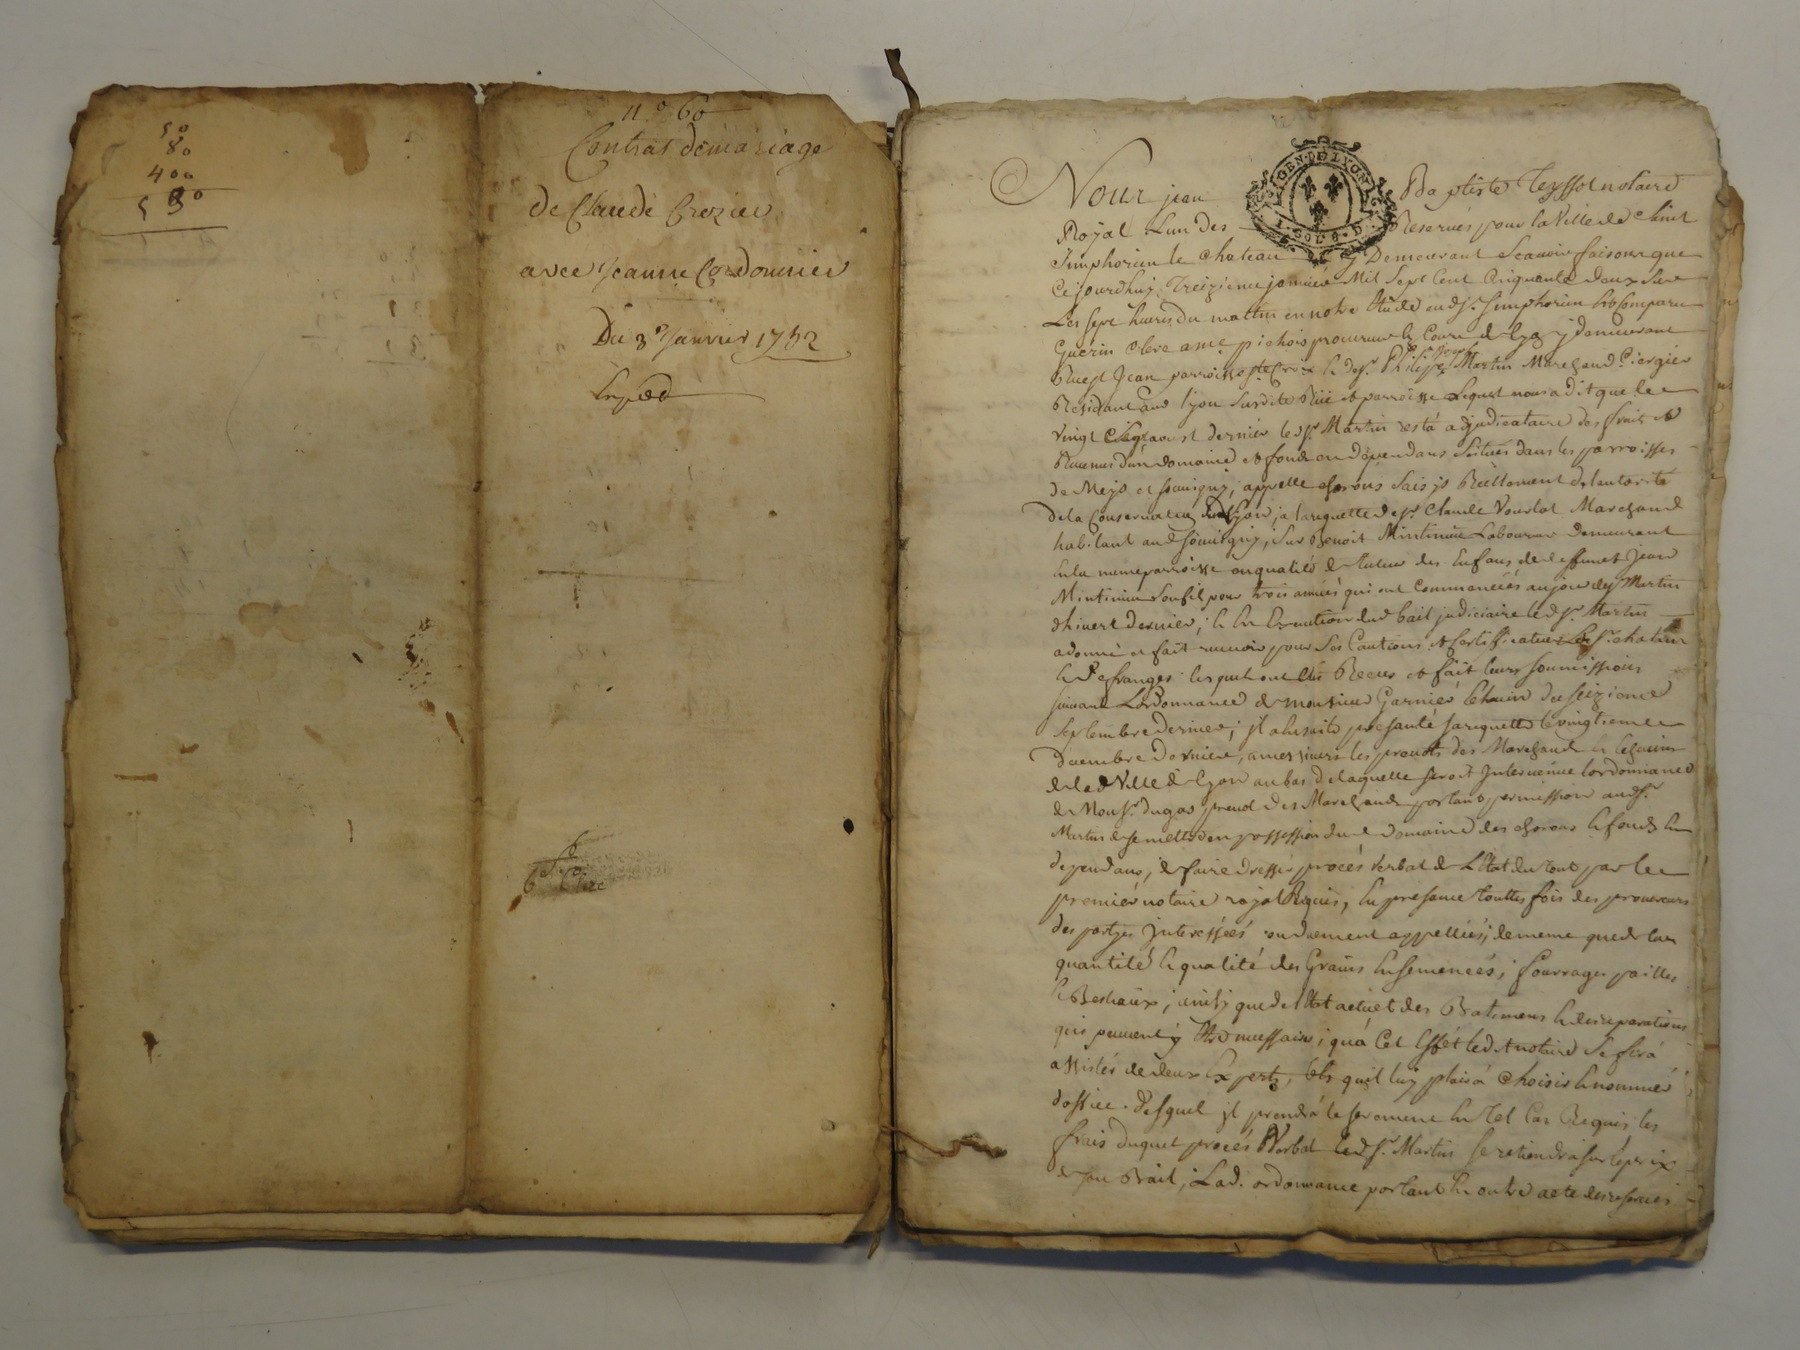 50
80
400
530
n.° 60
Contrat de mariage
de Claude Crozier
avec Jeanne Cordonnier
Du 3e Janvier 1752
Exped
GEN·DE LYON
Nous jean Baptiste Teyssot notaire
Royal Lun des Reservés pour la Ville de Saint
Simphorien le chateau y Demeurant Scavoir faisons que
Cejourdhuy Treizieme janvier Mil Sept Cent Cinquante deux Sur
Les sept heures du mattin en notre Etude aud. St. Simphorien Est Comparu
Guerin Clerc a me. pichois procureur Es Cours de lyon y demeurant
Rue St Jean parroisse Ste Croix le de Sr. Philippe Martin Marchand Ciergier
Residant aud lyon Susdite Rüe et parroisse Lequel nous a dit que le
vingt aoust dernier led Sr. Martin resta adjudicataire des fruits et
Revenus d'un domaine et fonds en dépendans Scitués dans les parroisses
de Meys et , appellé chorons Saisys Réellement de lautorité
de la Conservation de Lyon, a la requette de Sr. Claude Marchand
habitant aud , Sur Benoit Laboureur Demeurant
En la meme parroisse en qualité de tuteur des Enfans de deffunct Jean
Son fils pour trois années qui ont Commencées au jour de St Martin
dhivert dernier; & En Execution dud bail judiciaire led Sr. Martin
a donné et fait recevoir pour Ses Cautions et Certifficateur Les Sr. 
& Desfranges lesquels ont étés Receus et fait leurs Soumissions
suivant Lordonnance de monsieur Garnier Echevin du Seizieme
Septembre dernier; jl a Ensuite presanté Sa requette le vingtieme
decembre Dernier, a messieurs les prevots des Marchands & Echevins
de lad Ville de lyon au bas de laquelle Seroit Intervenüe lordonnance
de Mons Sr. dugas prevot des Marchands portant permission aud Sr.
Martin de Se mettre en possession dud Domaine des chorons & fonds En
dependans, de faire dresser procés verbal de L'Etat du tout par le
premier notaire royal Requis, En presance touttes fois des procureurs
des partyes Interessées ou duement appellées; de meme que de la
quantité & qualité des Grains Ensemencés, fourrages pailles
& Bestiaux; ainsy que de l'Etat actuel des Batimens & des reparations
qui peuvent y Etre necessaires; qu'a Cet Effet led notaire Se fera
assister de deux Experts, tels quil luy plaira Choisir & nommer
d'office. desquels jl prendra le Serement En Tel Cas Requis les
frais duquel procés Verbal led Sr. Martin Se retiendra Sur le prix
de Son Bail, Lad. ordonnance portant En outre acte des reserves